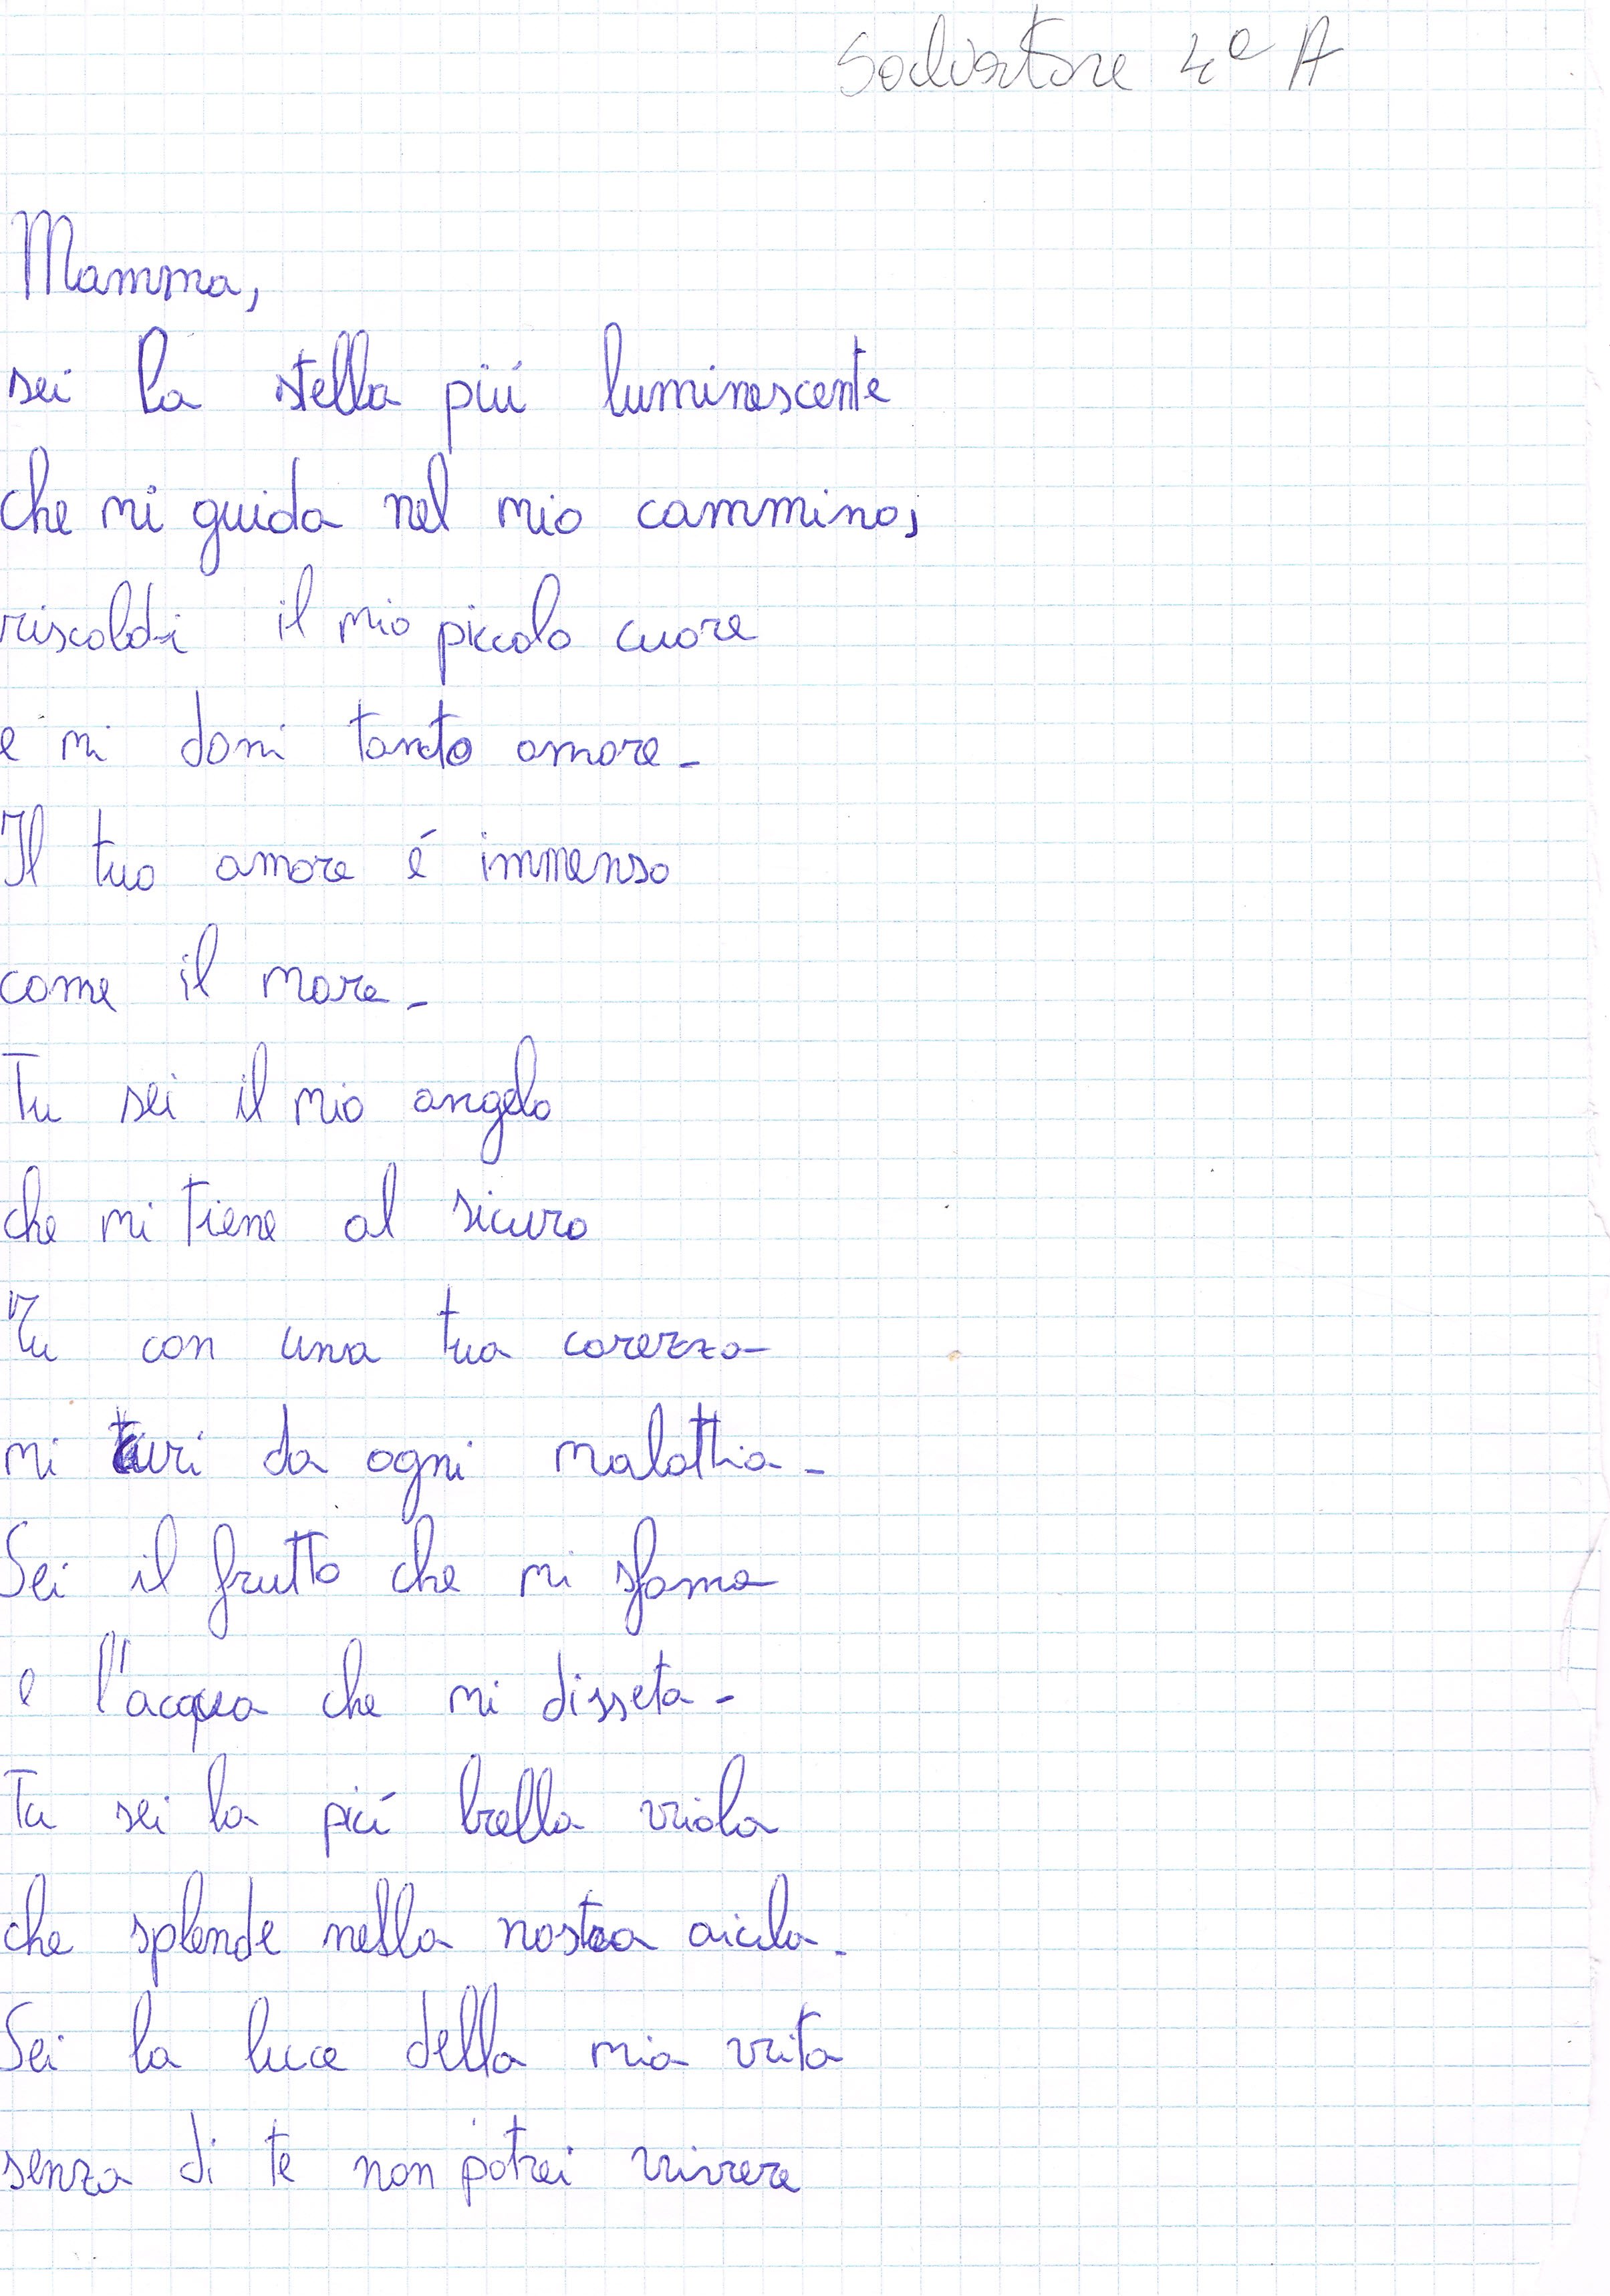 Salvatore 4ª A
Mamma,
sei la stella più luminescente
che mi guida nel mio cammino,
riscaldi il mio piccolo cuore
e mi doni tanto amore.
Il tuo amore é immenso
come il mare.
Tu sei il mio angelo
che mi tiene al sicuro
Tu con una tua carezza
mi curi da ogni malattia.
Sei il frutto che mi sfama
e l'acqua che mi disseta.
Tu sei la più bella viola
che splende nella nostra aiula.
Sei la luce della mia vita
senza di te non potrei vivere